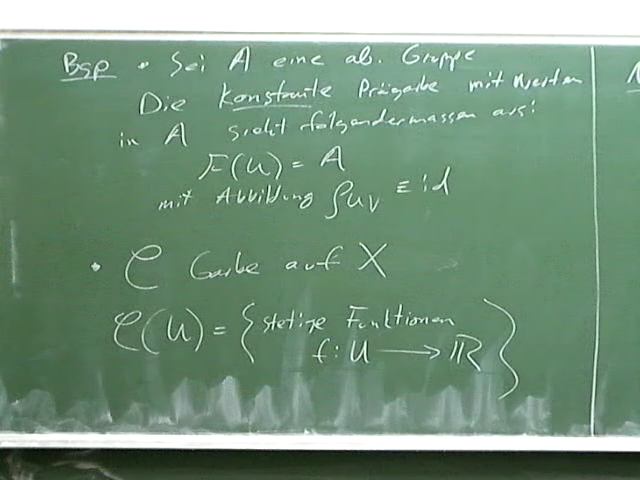 Bsp • Sei A eine ab. Gruppe
Die konstante Prägarbe mit Werten
in A sieht folgendermassen aus:
F(U) = A
mit Abbildung ρ_UV ≡ id
• C Garbe auf X
C(U) = { stetige Funktionen
f: U → ℝ }